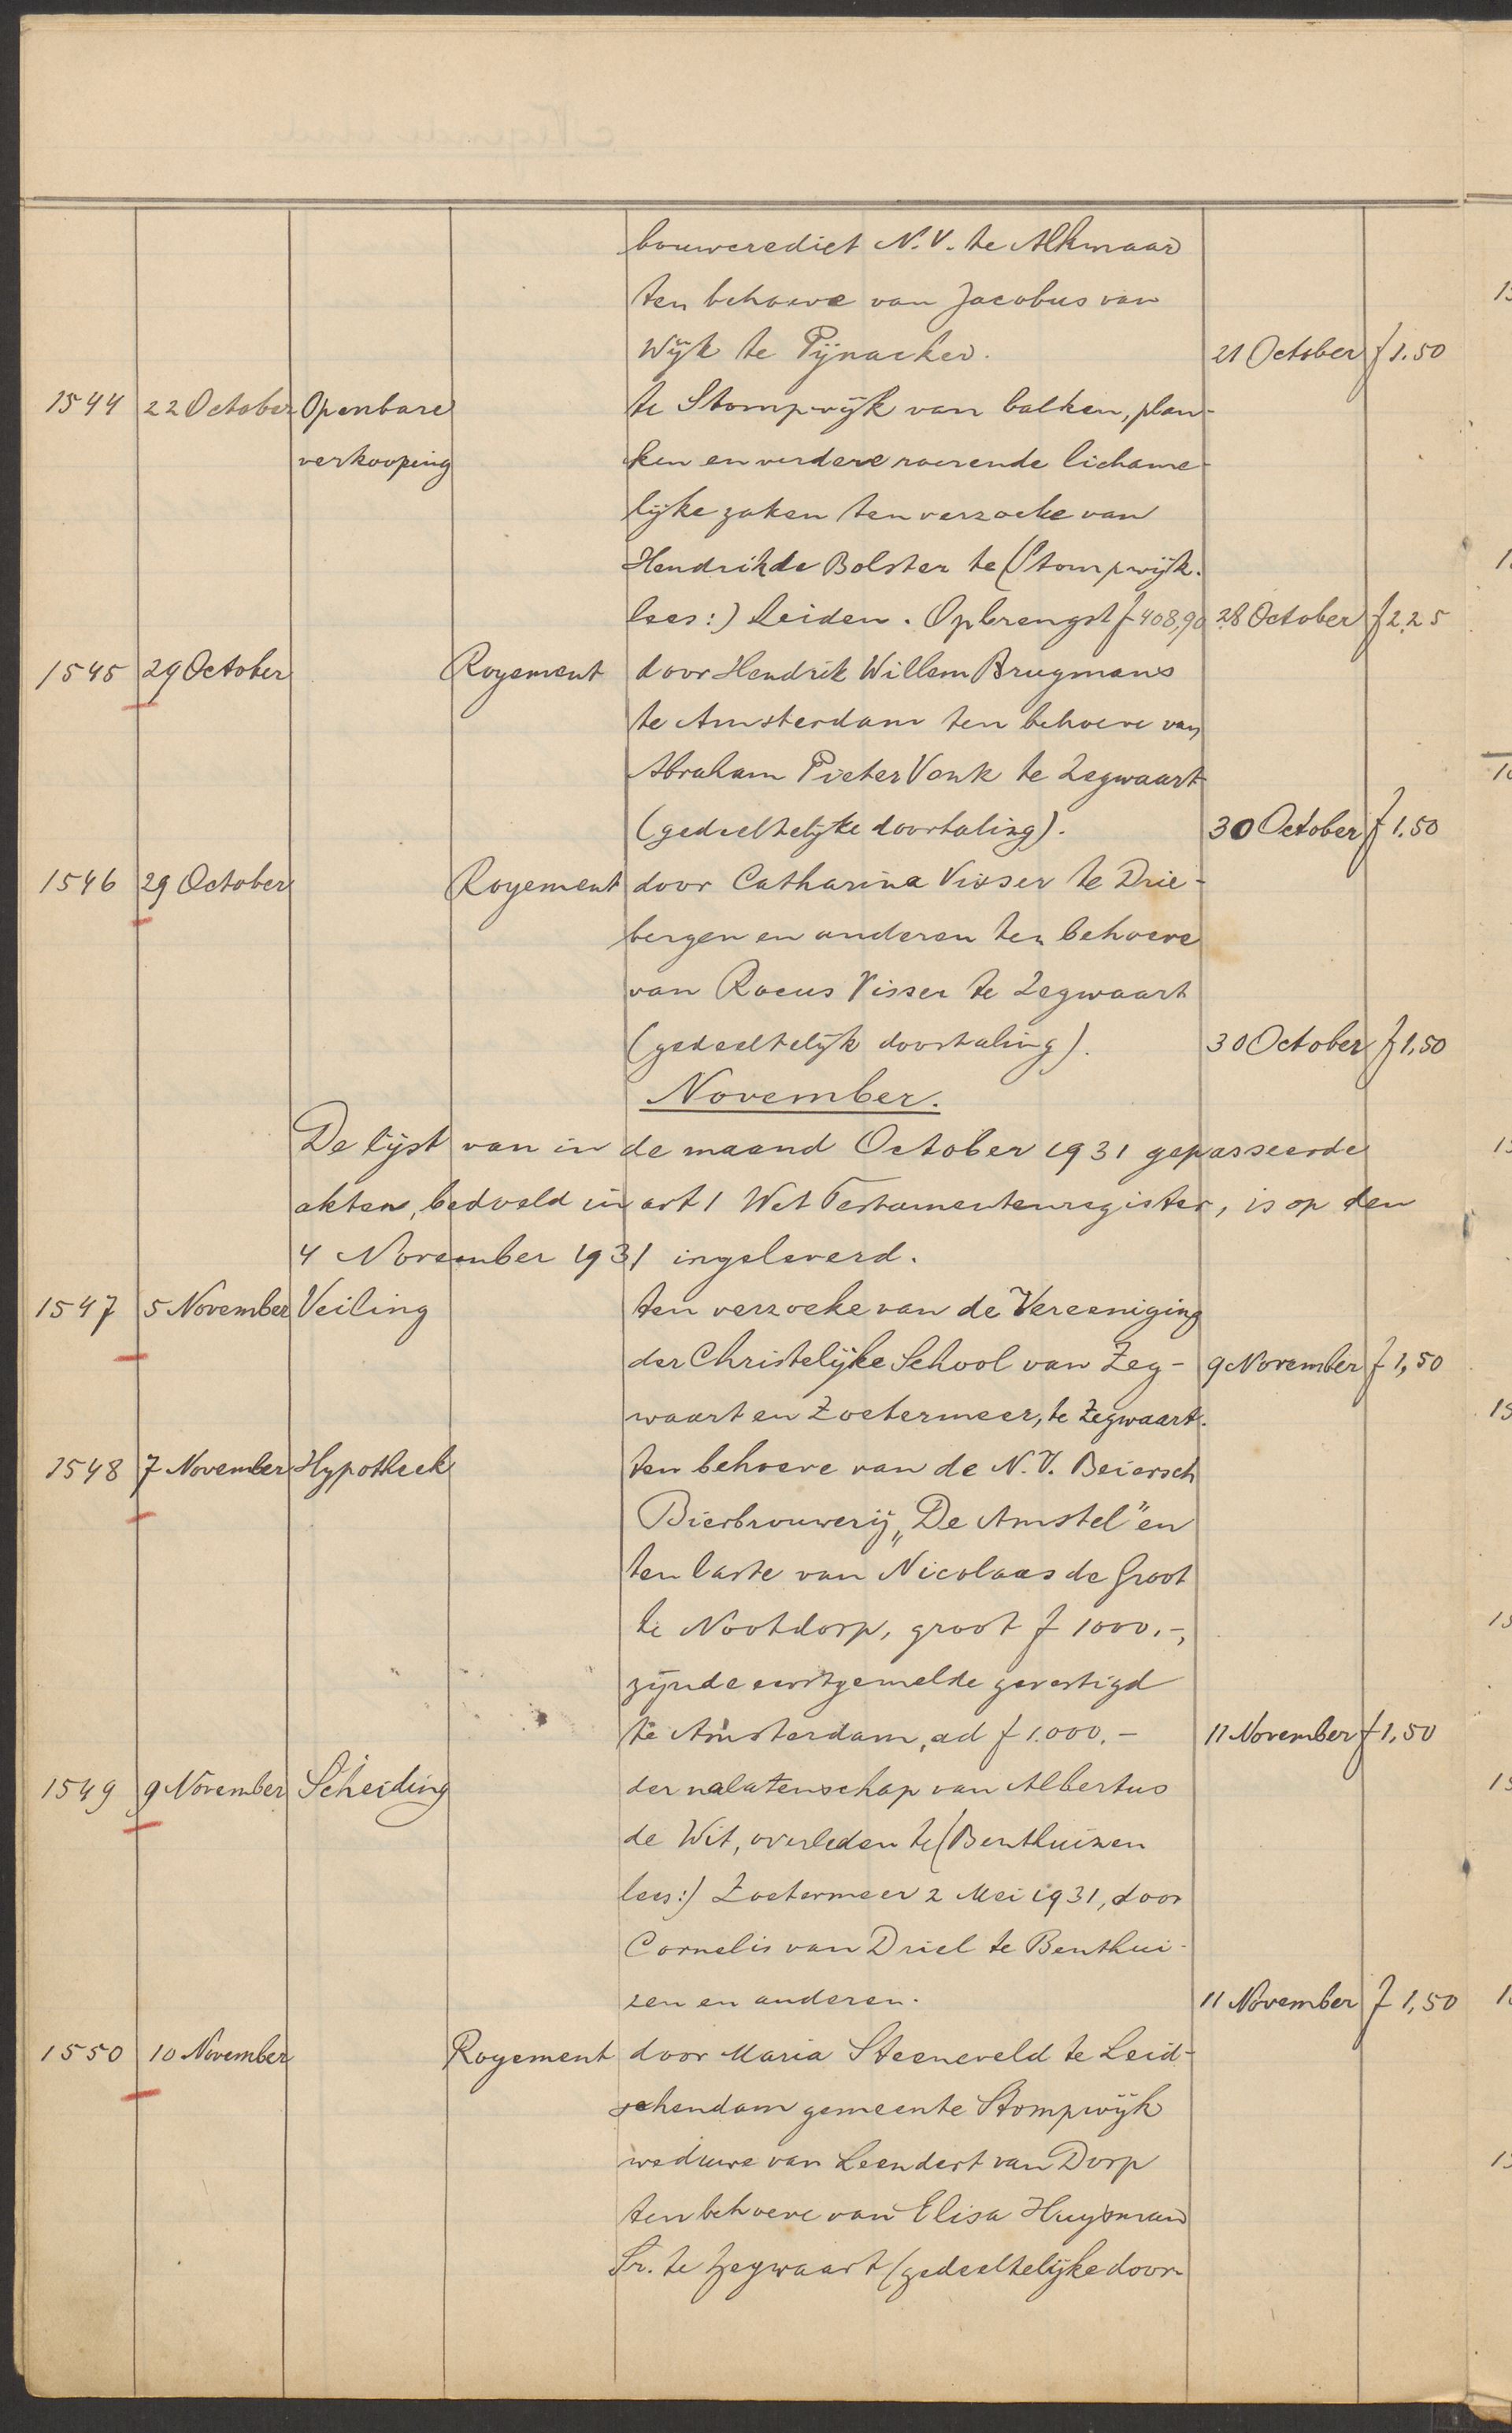 bouwcrediet N.V. te Alkmaar
ten behoeve van Jacobus van
Wijk te Pijnacker. 21 October f 1.50
1544 22 October Openbare te Stompwijk van balken, plan-
verkooping ken en verdere roerende lichame-
lijke zaken ten verzoeke van
Hendrik de Bolster te (Stompwijk.
lees:) Leiden. Opbrengst f 408,90 28 October f 2.25
1545 29 October Royement door Hendrik Willem Brugmans
te Amsterdam ten behoeve van
Abraham Pieter Vonk te Zegwaart
(gedeeltelijke doorhaling). 30 October f 1.50
1546 29 October Royement door Catharina Visser te Drie-
bergen en anderen ten behoeve
van Rocus Visser te Zegwaart
(gedeeltelijk doorhaling). 30 October f 1,50
November.
De lijst van in de maand October 1931 gepasseerde
akten, bedoeld in art 1 Wet Testamentenregister, is op den
4 November 1931 ingeleverd.
1547 5 November Veiling ten verzoeke van de Vereeniging
der Christelijke School van Zeg- 9 November f 1,50
waart en Zoetermeer, te Zegwaart.
1548 7 November Hypotheek ten behoeve van de N.V. Beiersch
Bierbrouwerij „De Amstel" en
ten laste van Nicolaas de Groot
te Nootdorp, groot f 1000.-,
zijnde eerstgemelde gevestigd
te Amsterdam, ad f 1.000.- 11 November f 1,50
1549 9 November Scheiding der nalatenschap van Albertus
de Wit, overleden te (Benthuizen
lees:) Zoetermeer 2 Mei 1931, door
Cornelis van Driel te Benthui-
zen en anderen. 11 November f 1,50
1550 10 November Royement door Maria Steeneveld te Leid-
schendam gemeente Stompwijk
weduwe van Leendert van Dorp
ten behoeve van Elisa Huysman
Sr. te Zegwaart (gedeeltelijke door-